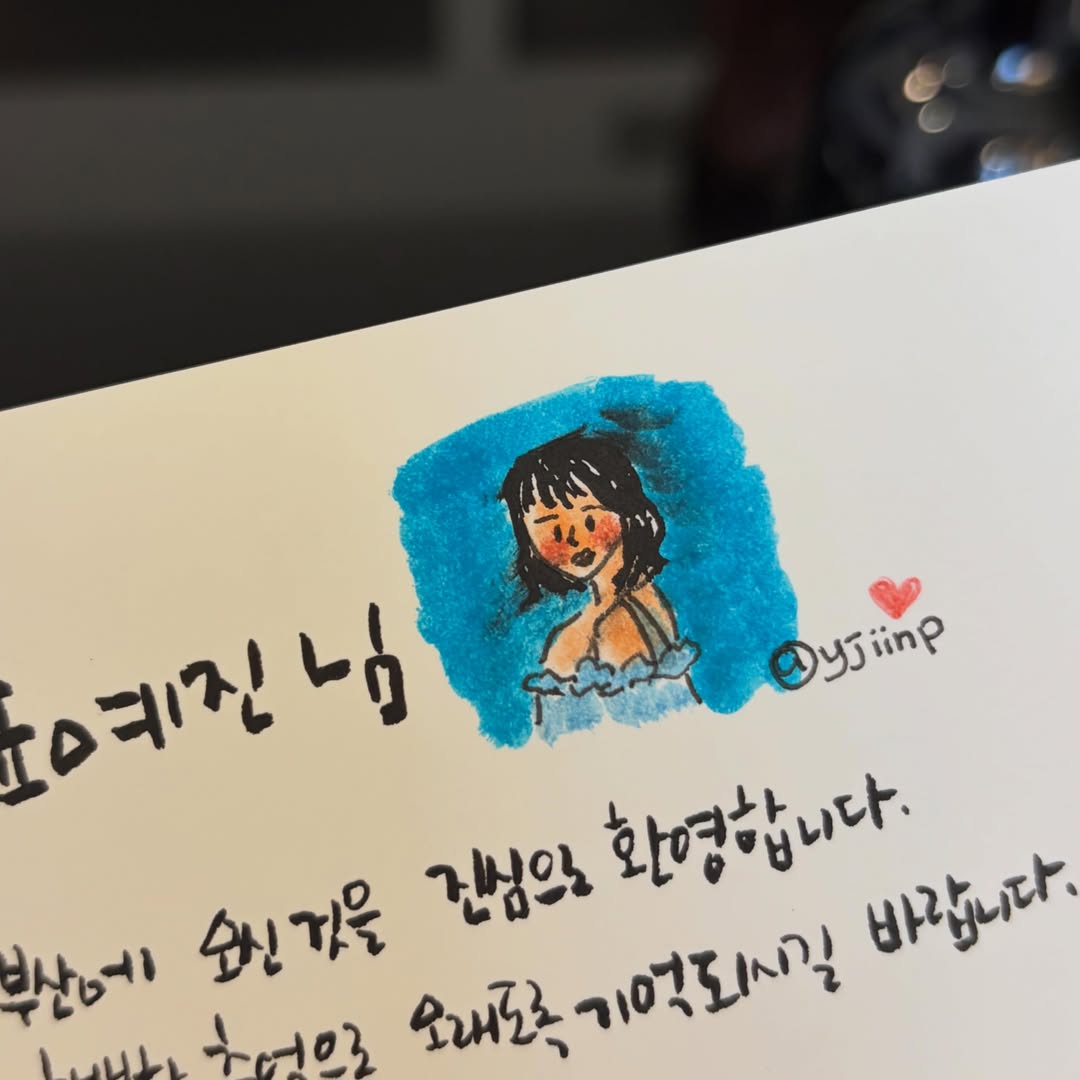 예진 님
@yjiinp
부산에 오신 것을 진심으로 환영합니다.
추억으로 오래도록 기억되시길 바랍니다.